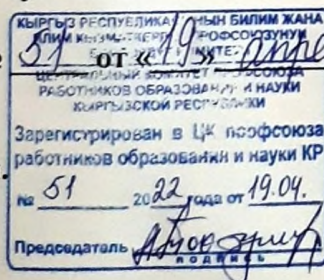 КЫРГЫЗ РЕСПУБЛИКА НЫН БИЛИМ ЖАНА
51 от «19» апре
ЦЕНТРАЛЬНЫЙ КОМИТЕТ ПРОФСОЮЗА
РАБОТНИКОВ ОБРАЗОВАНИЯ И НАУКИ
КЫРГЫЗСКОЙ РЕСПУБЛИКИ
Зарегистрирован в ЦК профсоюза
работников образования и науки КР
№ 51 2022 года от 19.04.
Председатель
подпись